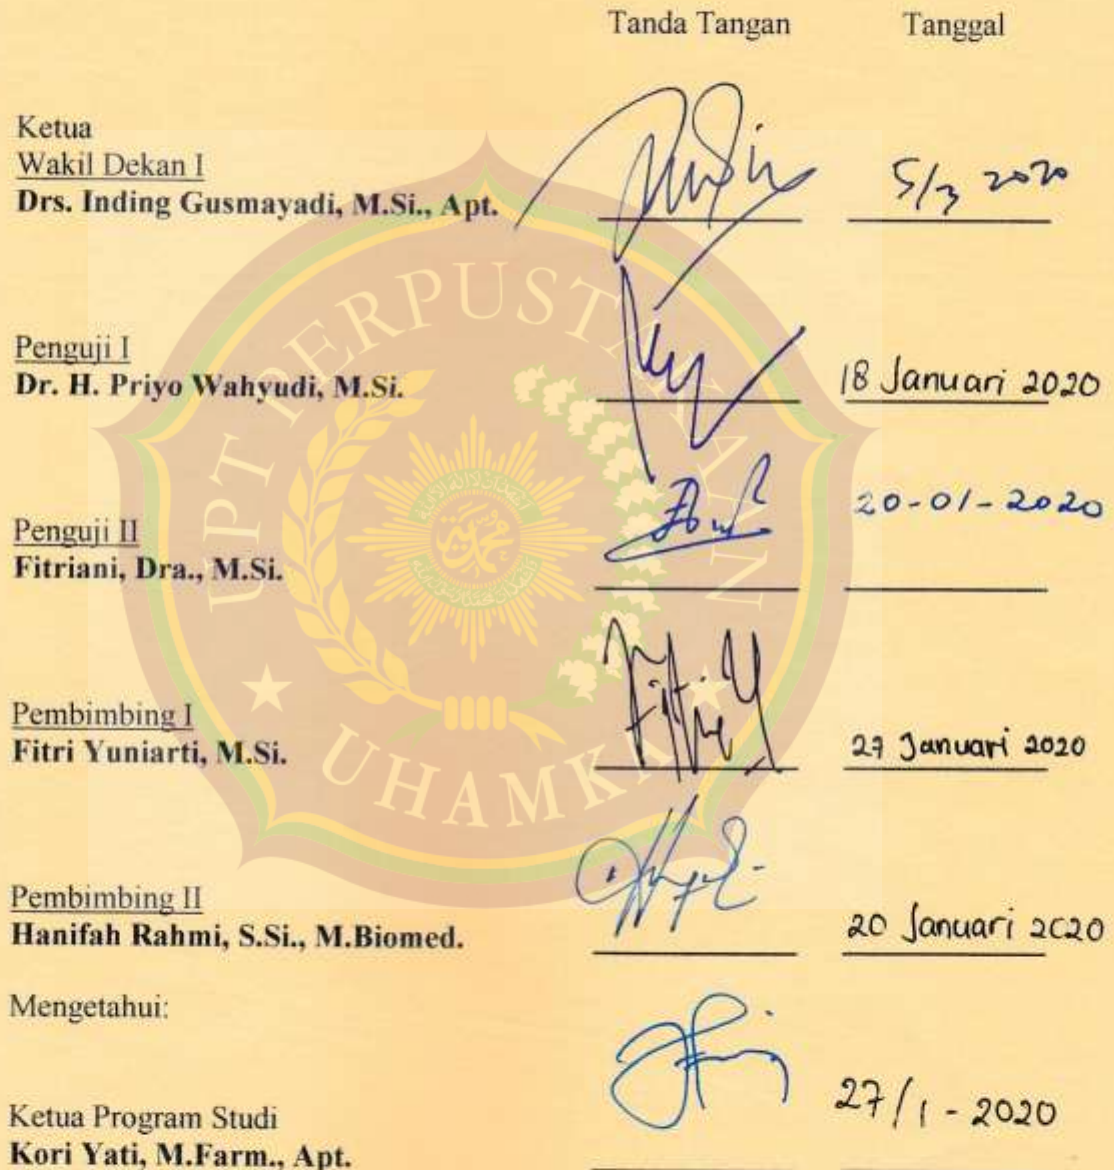 Tanda Tangan Tanggal
Ketua
Wakil Dekan I
Drs. Inding Gusmayadi, M.Si., Apt. 5/3 2020
Penguji I
Dr. H. Priyo Wahyudi, M.Si. 18 Januari 2020
Penguji II 20-01-2020
Fitriani, Dra., M.Si.
Pembimbing I
Fitri Yuniarti, M.Si. 27 Januari 2020
Pembimbing II
Hanifah Rahmi, S.Si., M.Biomed. 20 Januari 2020
Mengetahui:
Ketua Program Studi 27/1-2020
Kori Yati, M.Farm., Apt.
UPT PERPUSTAKAAN
UHAMKA